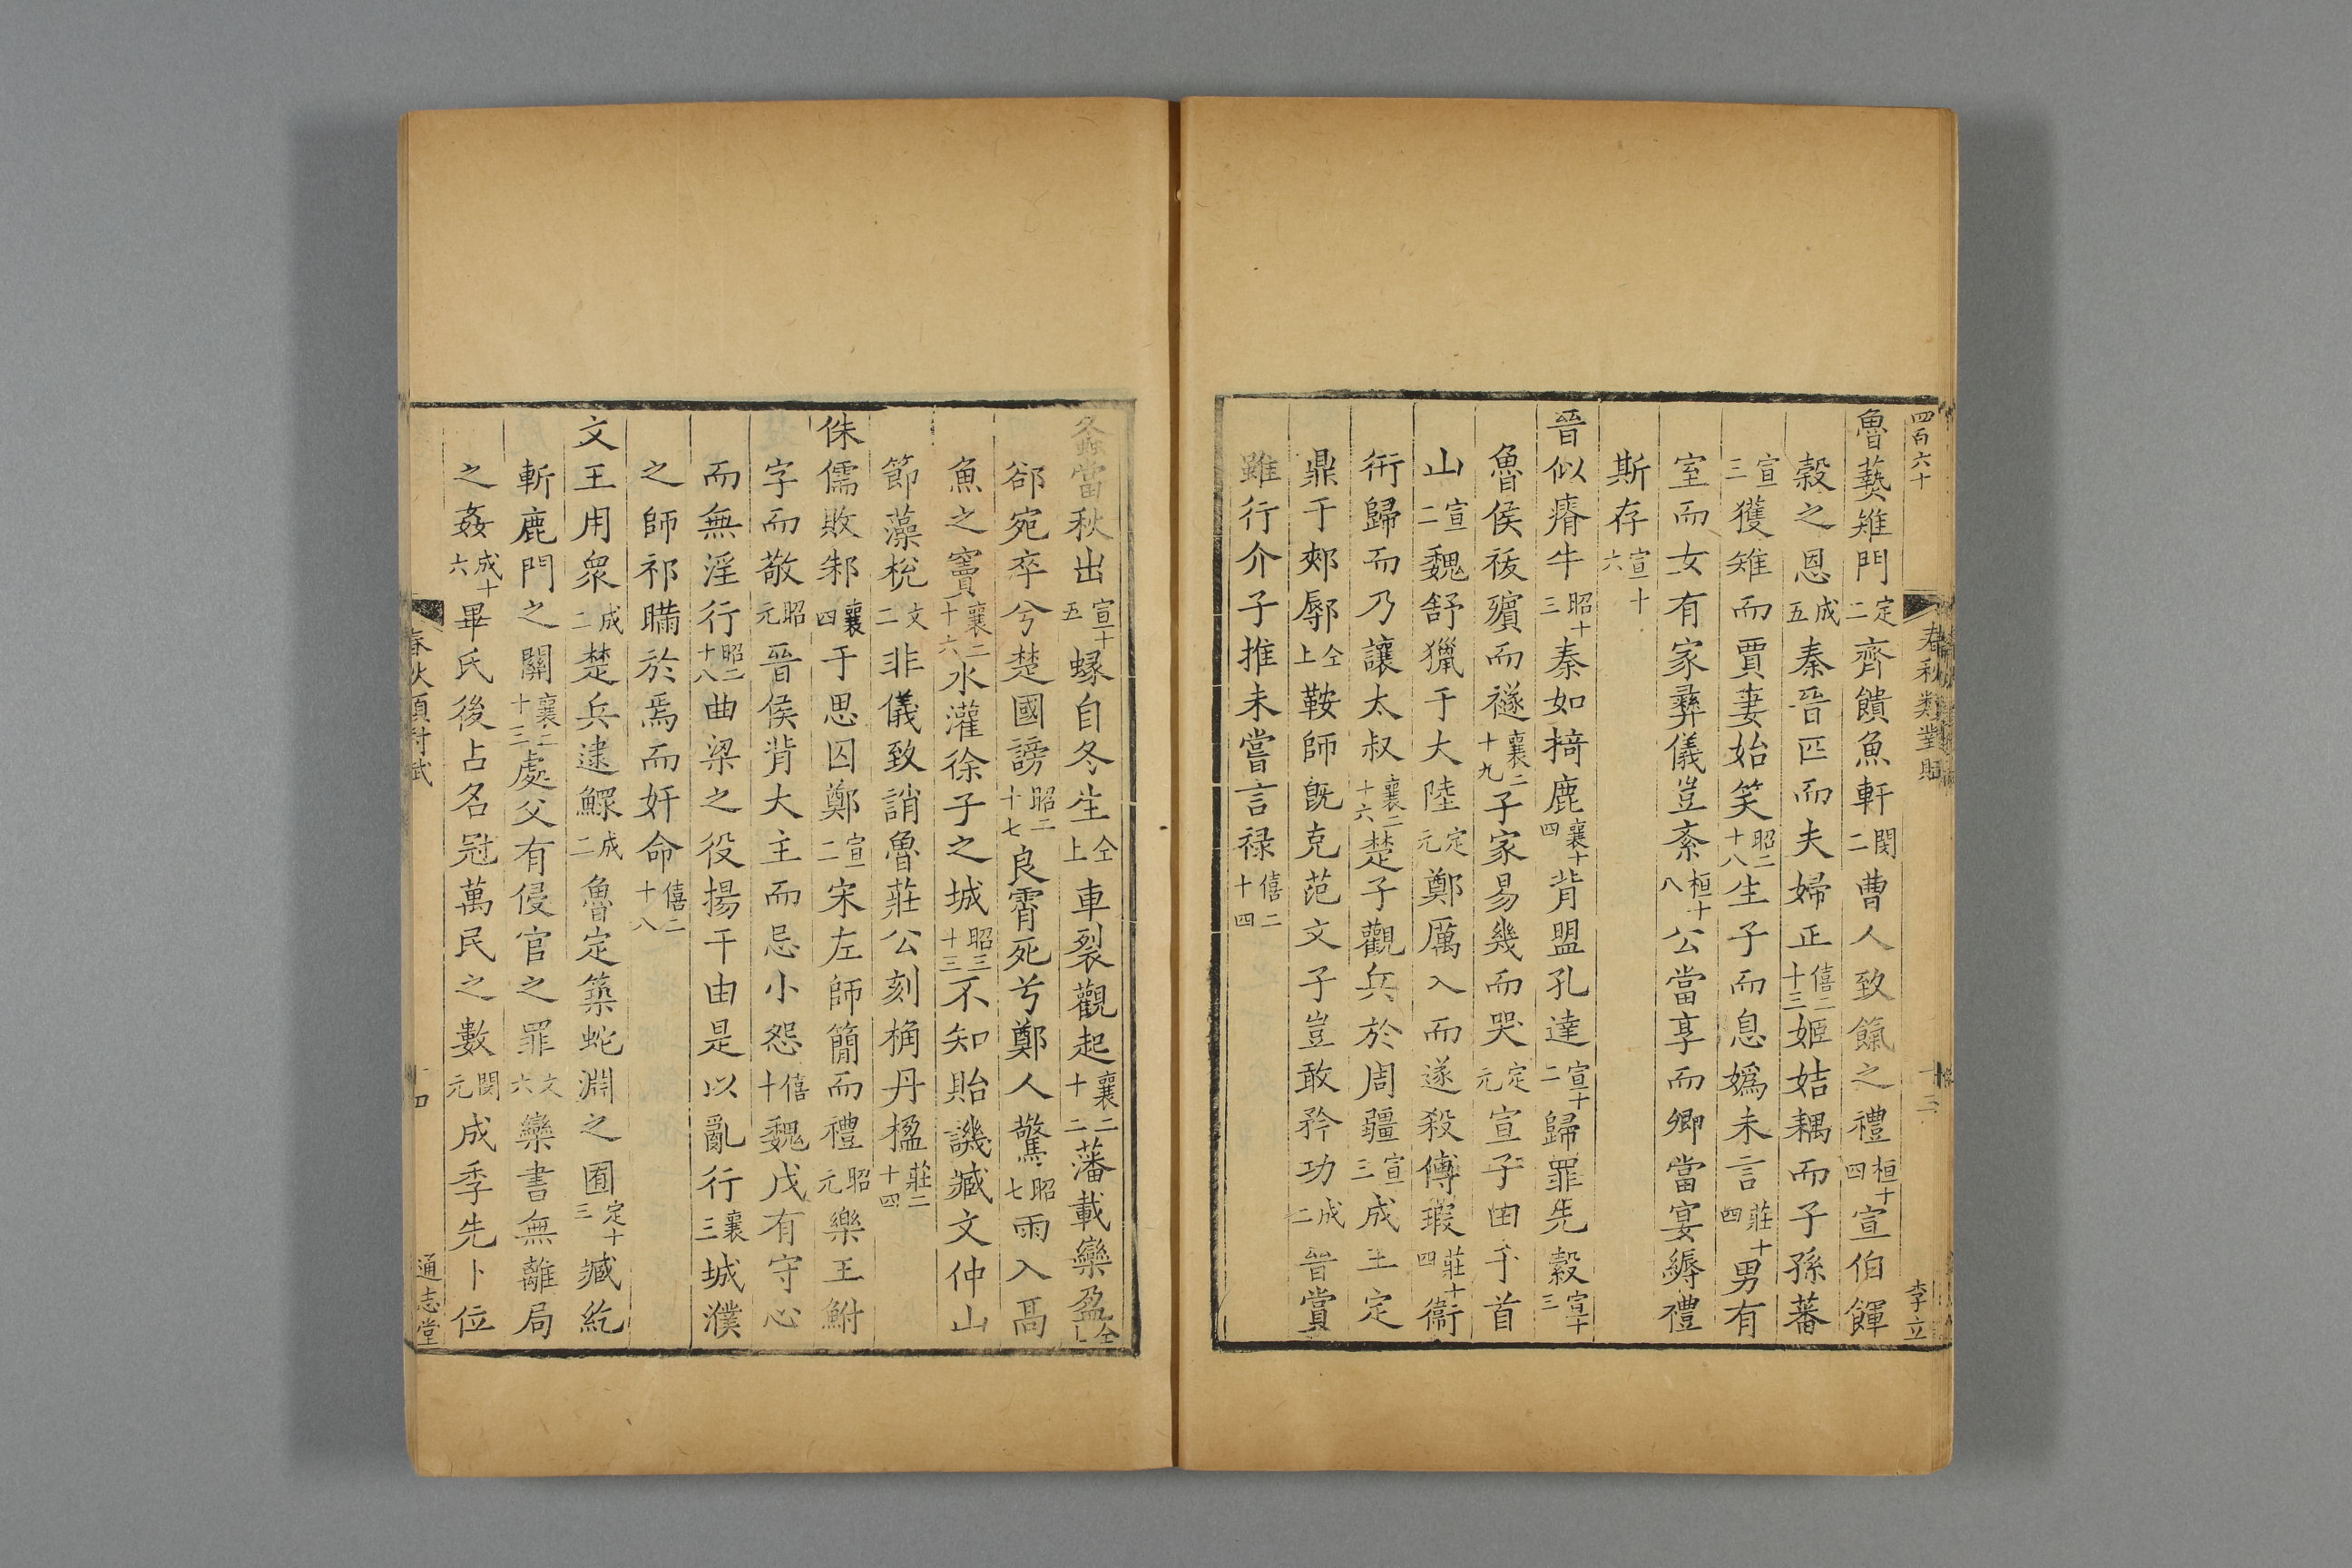 四百六十
春秋類對賦
十三
李立
魯爇雉門定二齊饋魚軒閔二曹人致餼之禮桓十四宣伯餫
穀之恩成五秦晉匹而夫婦正僖二十三姬姞耦而子孫蕃
宣三獲雉而賈妻始笑昭二十八生子而息嬀未言莊十四男有
室而女有家彛儀豈紊桓十八公當享而卿當宴縟禮
斯存宣十六
晉似瘠牛昭十三秦如掎鹿襄十四背盟孔達宣十二歸罪先縠宣十三
魯侯祓殯而襚襄二十九子家易幾而哭定元宣子田于首
山宣二魏舒獵于大陸定元鄭厲入而遂殺傅瑕莊十四衞
衎歸而乃讓太叔襄二十六楚子觀兵於周疆宣三成王定
鼎于郟鄏仝上鞍師旣克范文子豈敢矜功成二晉賞
雖行介子推未嘗言禄僖二十四
螽當秋出宣十五蝝自冬生仝上車裂觀起襄二十二藩載欒盈仝上
郤宛卒兮楚國謗昭二十七良霄死兮鄭人驚昭七雨入高
魚之竇襄二十六水灌徐子之城昭三十三不知貽譏臧文仲山
節藻梲文二非儀致誚魯莊公刻桷丹楹莊二十四
侏儒敗邾襄四于思囚鄭宣二宋左師簡而禮昭元樂王鮒
字而敬昭元晉侯背大主而忌小怨僖十魏戊有守心
而無淫行昭二十八曲梁之役揚干由是以亂行襄三城濮
之師祁瞞於焉而奸命僖二十八
文王用衆成二楚兵逮鰥成二魯定築蛇淵之囿定十三臧紇
斬鹿門之關襄二十三處父有侵官之罪文六欒書無離局
之姦成十六畢氏後占名冠萬民之數閔元成季先卜位
春秋類對賦
十四
通志堂